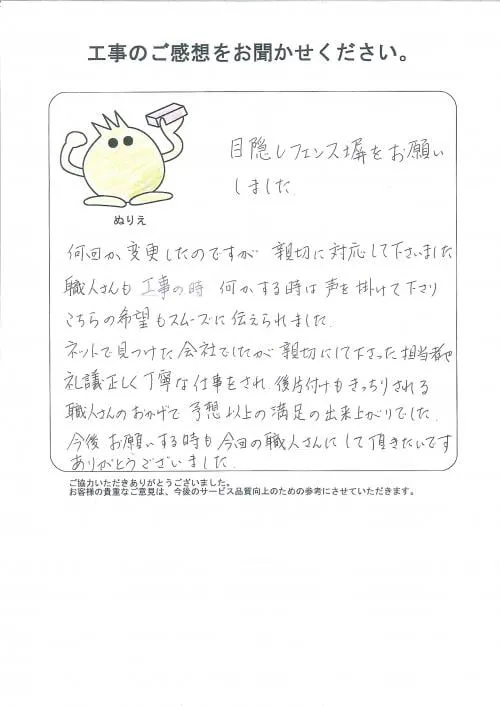 工事のご感想をお聞かせください。
目隠しフェンス塀をお願い
しました。
ぬりえ
何回か変更したのですが 親切に対応して下さいました
職人さんも 工事の時 何かする時は声を掛けて下さり
こちらの希望もスムーズに伝えられました。
ネットで見つけた会社でしたが 親切にして下さった担当者や
礼議正しく丁寧な仕事をされ、後片付けもきっちりされる
職人さんのおかげで予想以上の満足の出来上がりでした。
今後お願いする時も今回の職人さんにして頂きたいです
ありがとうございました。
ご協力いただきありがとうございました。
お客様の貴重なご意見は、今後のサービス品質向上のための参考にさせていただきます。